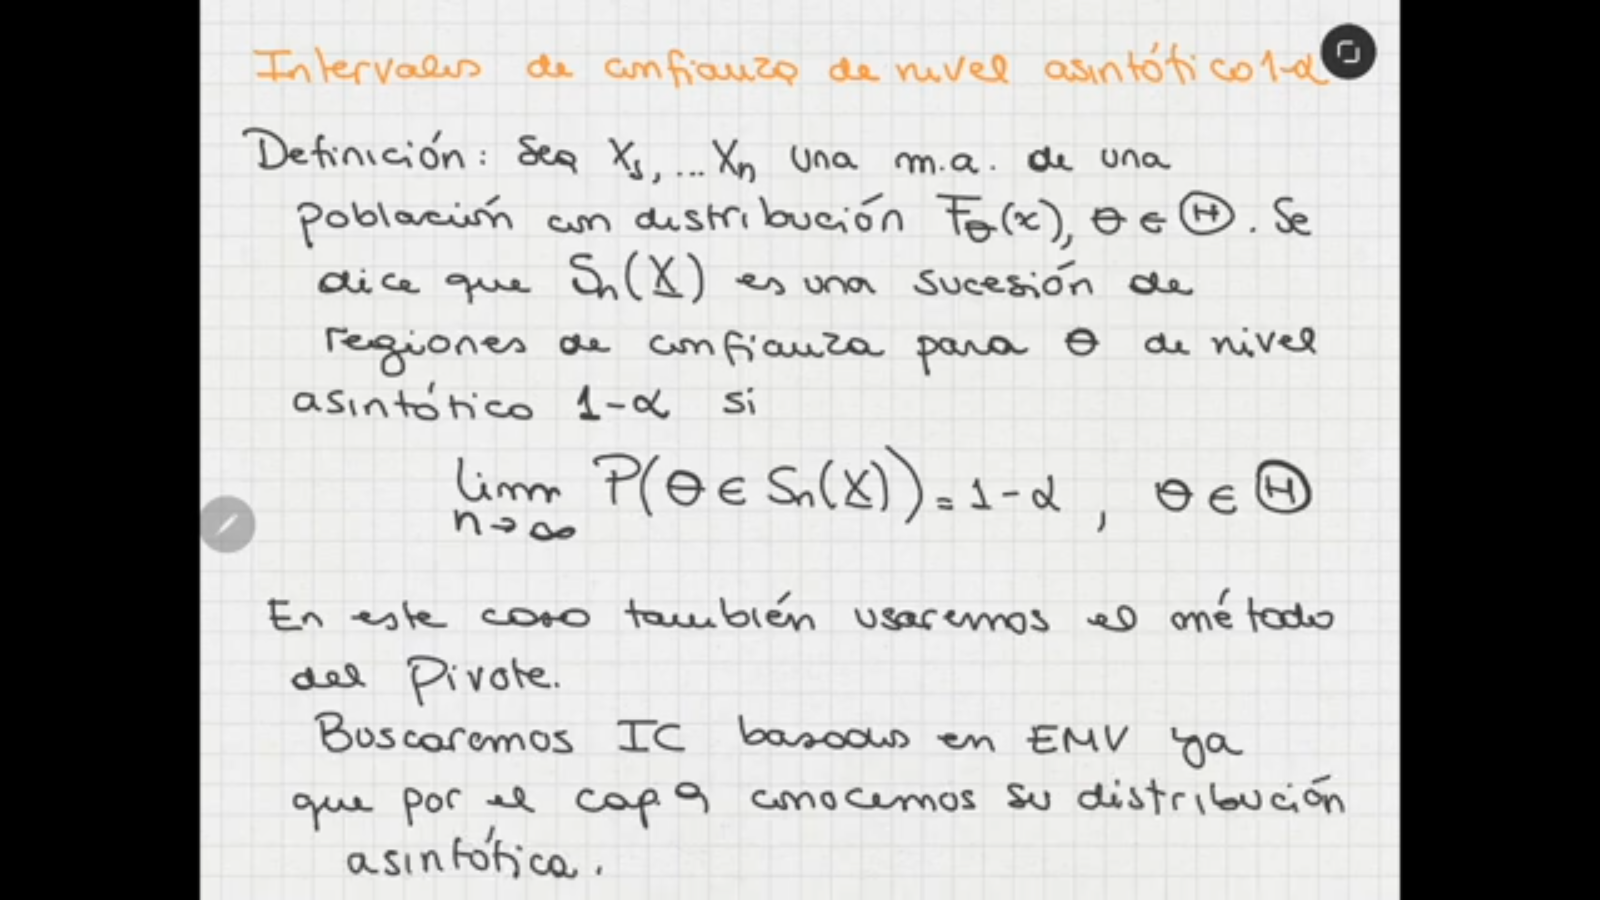 Intervalos de confianza de nivel asintótico 1-α
Definición: Sea X₁, ... Xn una m.a. de una
población con distribución F_θ(x), θ ∈ Θ. Se
dice que Sn(X) es una sucesión de
regiones de confianza para θ de nivel
asintótico 1-α si
lim P(θ ∈ Sn(X)) = 1-α , θ ∈ Θ
n→∞
En este caso también usaremos el método
del Pivote.
Buscaremos IC basados en EMV ya
que por el cap 9 conocemos su distribución
asintótica.